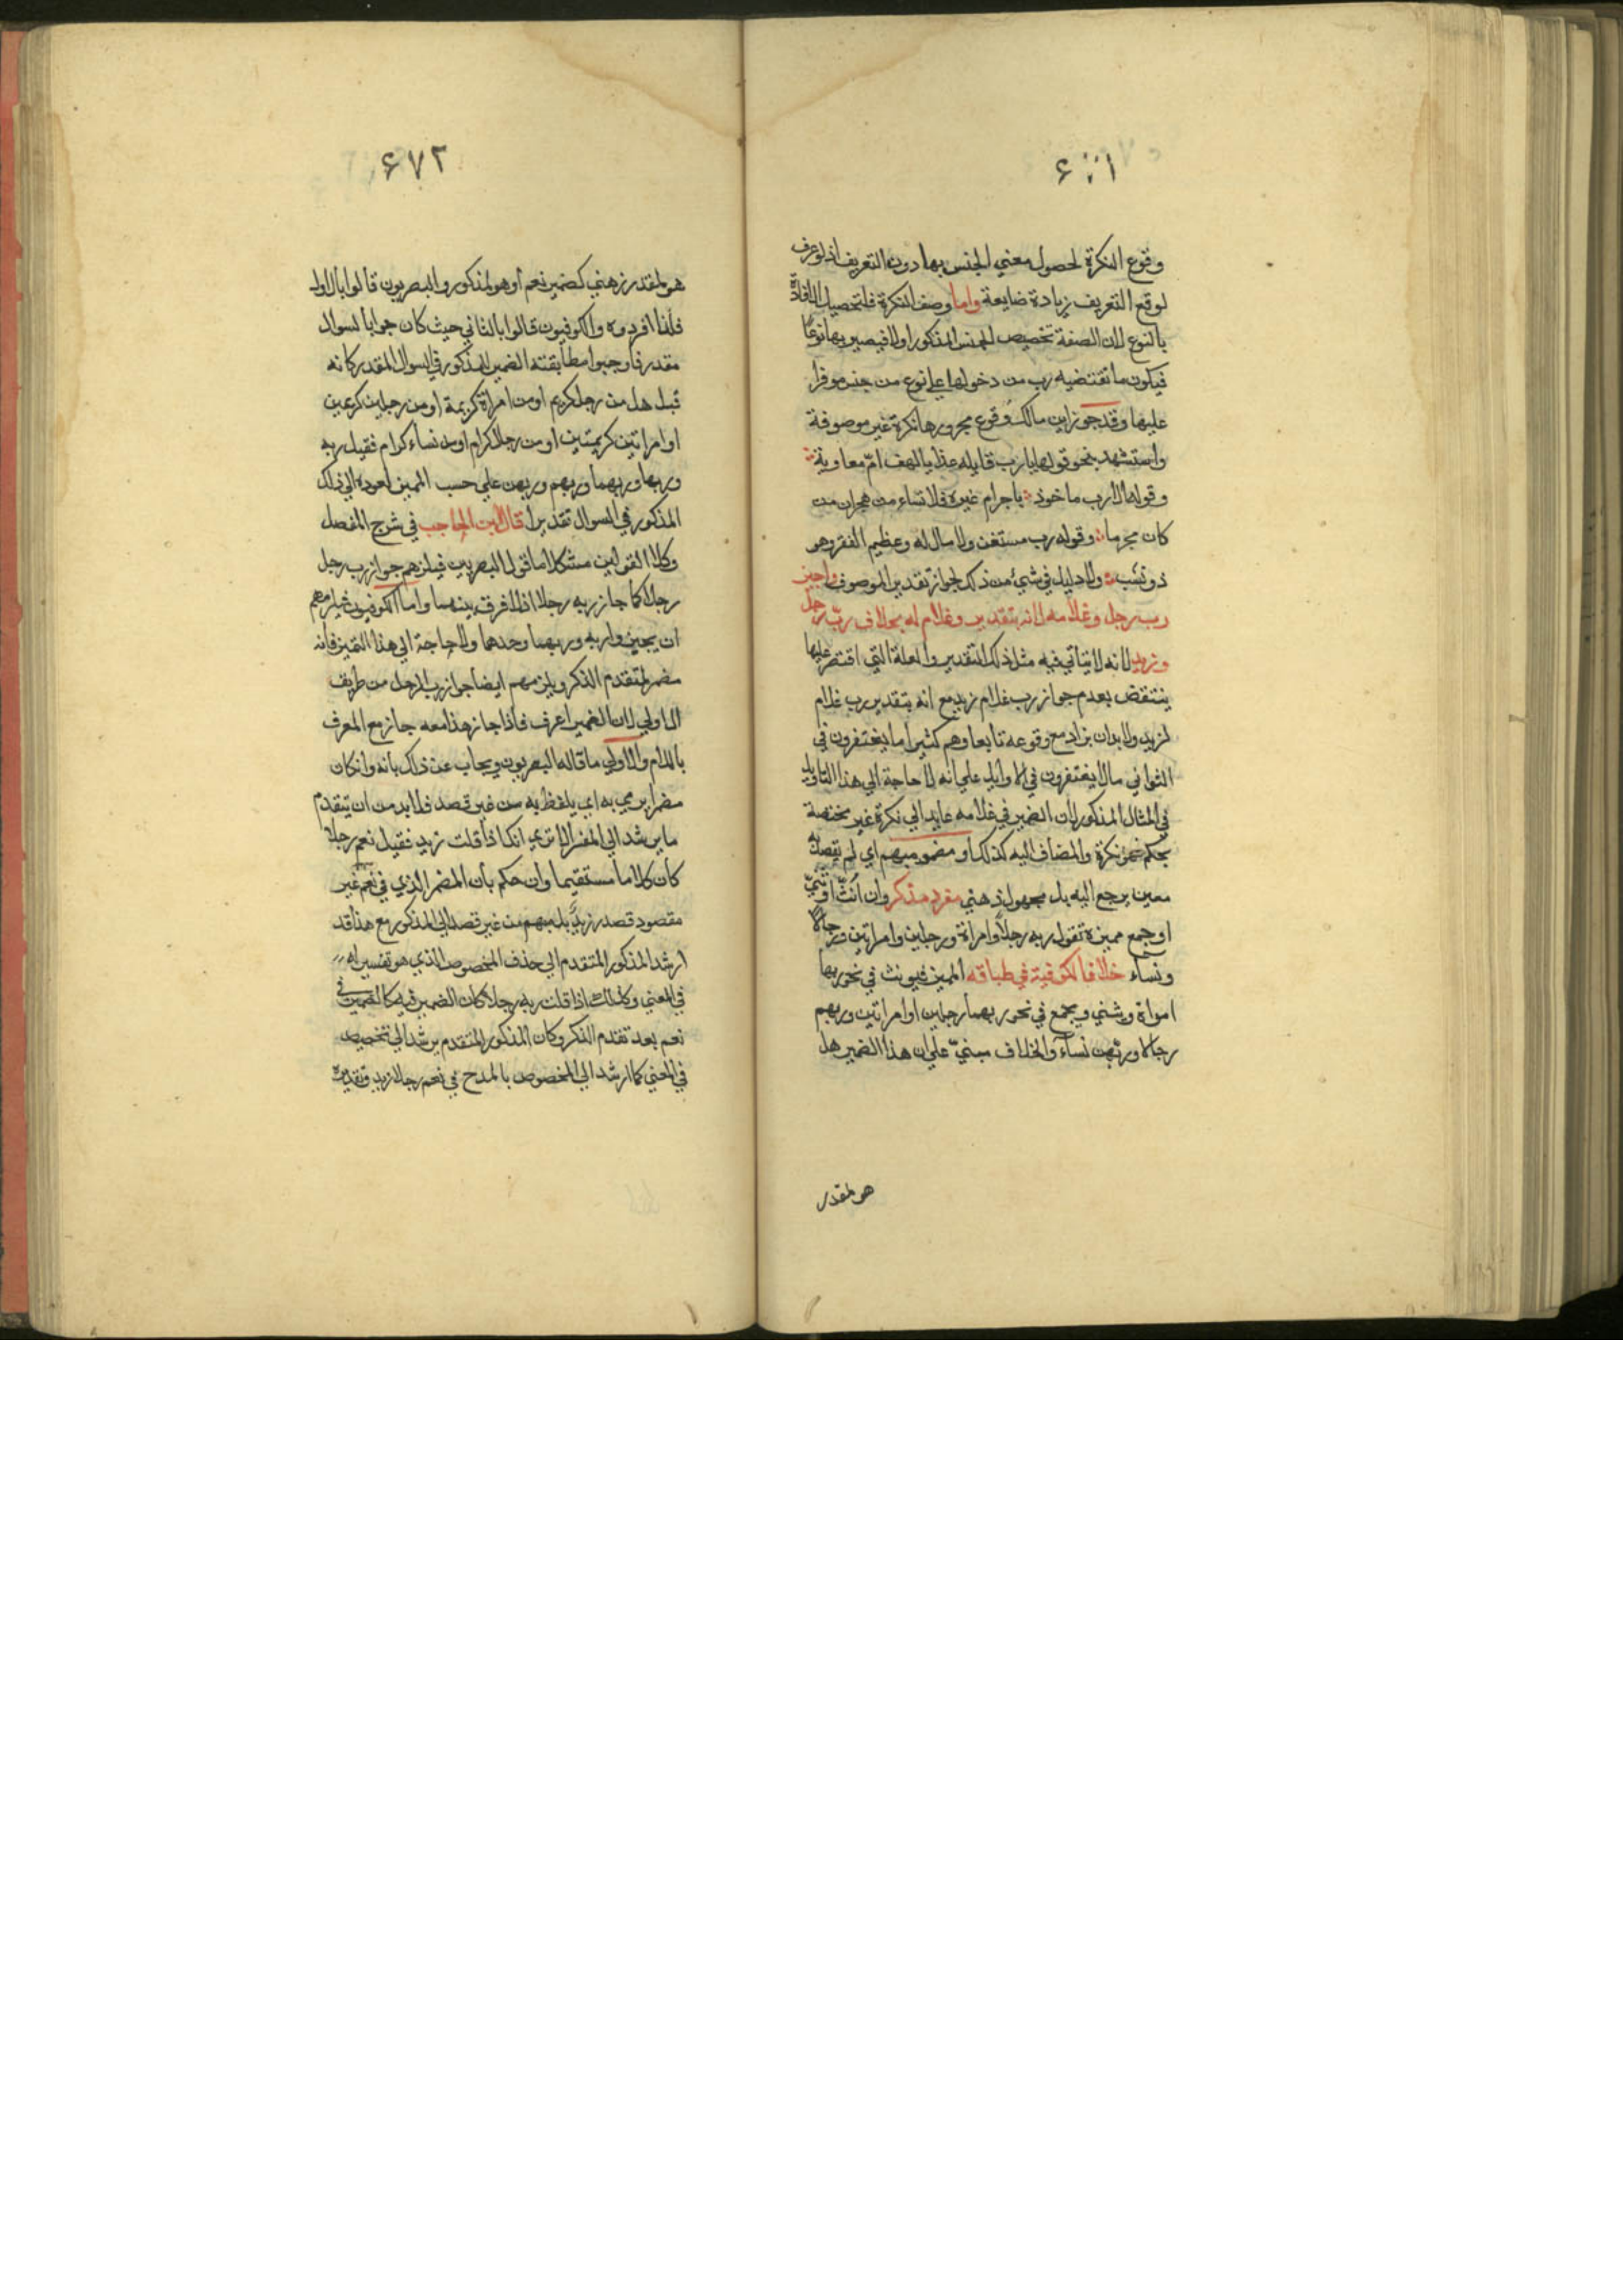 ٤٧١
وقوع النكرة لحصول معني الجنس بها دون التعريف اذ لو عرف
لوقع التعريف زيادة ضايعة واما وصف النكرة فلتحصيل الافادة
بالنوع لان الصفة تخصيص الجنس المذكور اولا فيصير بها نوعًا
فيكون ما تقتضيه رب من دخولها علي نوع من جنس موفرا
عليها وقد جوز ابن مالك وقوع مجرورها نكرة غير موصوفة
واستشهد بنحو قولها يا رب قايلة غدا يا لهف امّ معاوية
وقوله الا رب ماخوذ باجرام غيره فلا تسأمن هجران من
كان مجرما وقوله رب مستغن ولا مال له وعظيم الفقر وهو
ذو نشب ولا دليل في شيء من ذلك لجواز تقدير الموصوف واجيز
رب رجل وغلامه لانه بتقدير وغلام له بخلاف ربّ رجل
وزيد لانه لا يتأتي فيه مثل ذلك التقدير والعلة التي اقتصر عليها
ينتقض بعدم جواز رب غلام زيد مع انه بتقدير رب غلام
لزيد ولا بد ان يزاد مع وقوعه تابعا وهم كثيرا ما يغتفرون في
الثواني ما لا يغتفرون في الاوايل علي انه لا حاجة الي هذا التاويل
في المثال المذكور لان الضمير في غلامه عايد الي نكرة غير مختصة
بحكم فهو نكرة والمضاف اليه كذلك او مضمر مبهم اي لم يقصد به
معين يرجع اليه بل مجهول ذهني مفرد مذكر وان انّث او ثنّي
او جمع مميزه تقول ربه رجلاً وامراة ورجلين وامراتين ورجالا
ونساء خلافا لكوفية في طباقه المميز فيونث في نحو ربها
امراة ويثني ويجمع في نحو ربهما رجلين او امراتين وربهم
رجالا وربّهن نساءً والخلاف مبنيّ علي ان هذا الضمير هل
هو لمقدر
٤٧٢
هو لمقدر ذهني كضمير نعم او هو لمذكور والبصريون قالوا بالاول
فلذا افردوه والكوفيون قالوا بالثاني حيث كان جوابا لسوال
مقدر فاوجبوا مطابقته الضمير المذكور في السوال المقدر كانه
قيل هل من رجل كريم او من امراة كريمة او من رجلين كريمين
او امراتين كريمتين او من رجال كرام او من نساء كرام فقيل ربه
وربها وربهما وربهم وربهن علي حسب المميز لعوده الي ذلك
المذكور في السوال تقديرا قال ابن الحاجب في شرح المفصل
وكلا القولين مشكل اما قول البصريين فيلزمهم جواز رب رجل
رجلا كما جاز ربه رجلا اذ لا فرق بينهما واما الكوفيون فيلزمهم
ان يجيزوا ربه وربهما وحدهما ولا حاجة الي هذا التميز فانه
مضمر لمتقدم الذكر ويلزمهم ايضا جواز رب الرجل من طريف
الاولي لان الضمير اعرف فاذا جاز هذا معه جاز مع المعرف
باللام والاولي ما قاله البصريون ويجاب عن ذلك بانه وان كان
مضمرا يرمي به اي يلفظ به من غير قصد فلا بد من ان يتقدم
ما يرشد الي المفسر الا تري انك اذا قلت زيد فقيل نعم رجلا
كان كلاما مستقيما وان حكم بان المضمر الذي في نعم غير
مقصود قصد زيدٍ بل مبهم من غير قصد الي المذكور مع هذا قد
ارشد المذكور المتقدم الي حذف المخصوص الذي هو تفسير له
في المعني وكذلك اذا قلت ربه رجلا كان الضمير فيه كالضمير في
نعم بعد تقدم الذكر وكان المذكور المتقدم يرشد الي تخصيص
في المعني كما ارشد الي المخصوص بالمدح في نعم رجلا زيد وتقديره